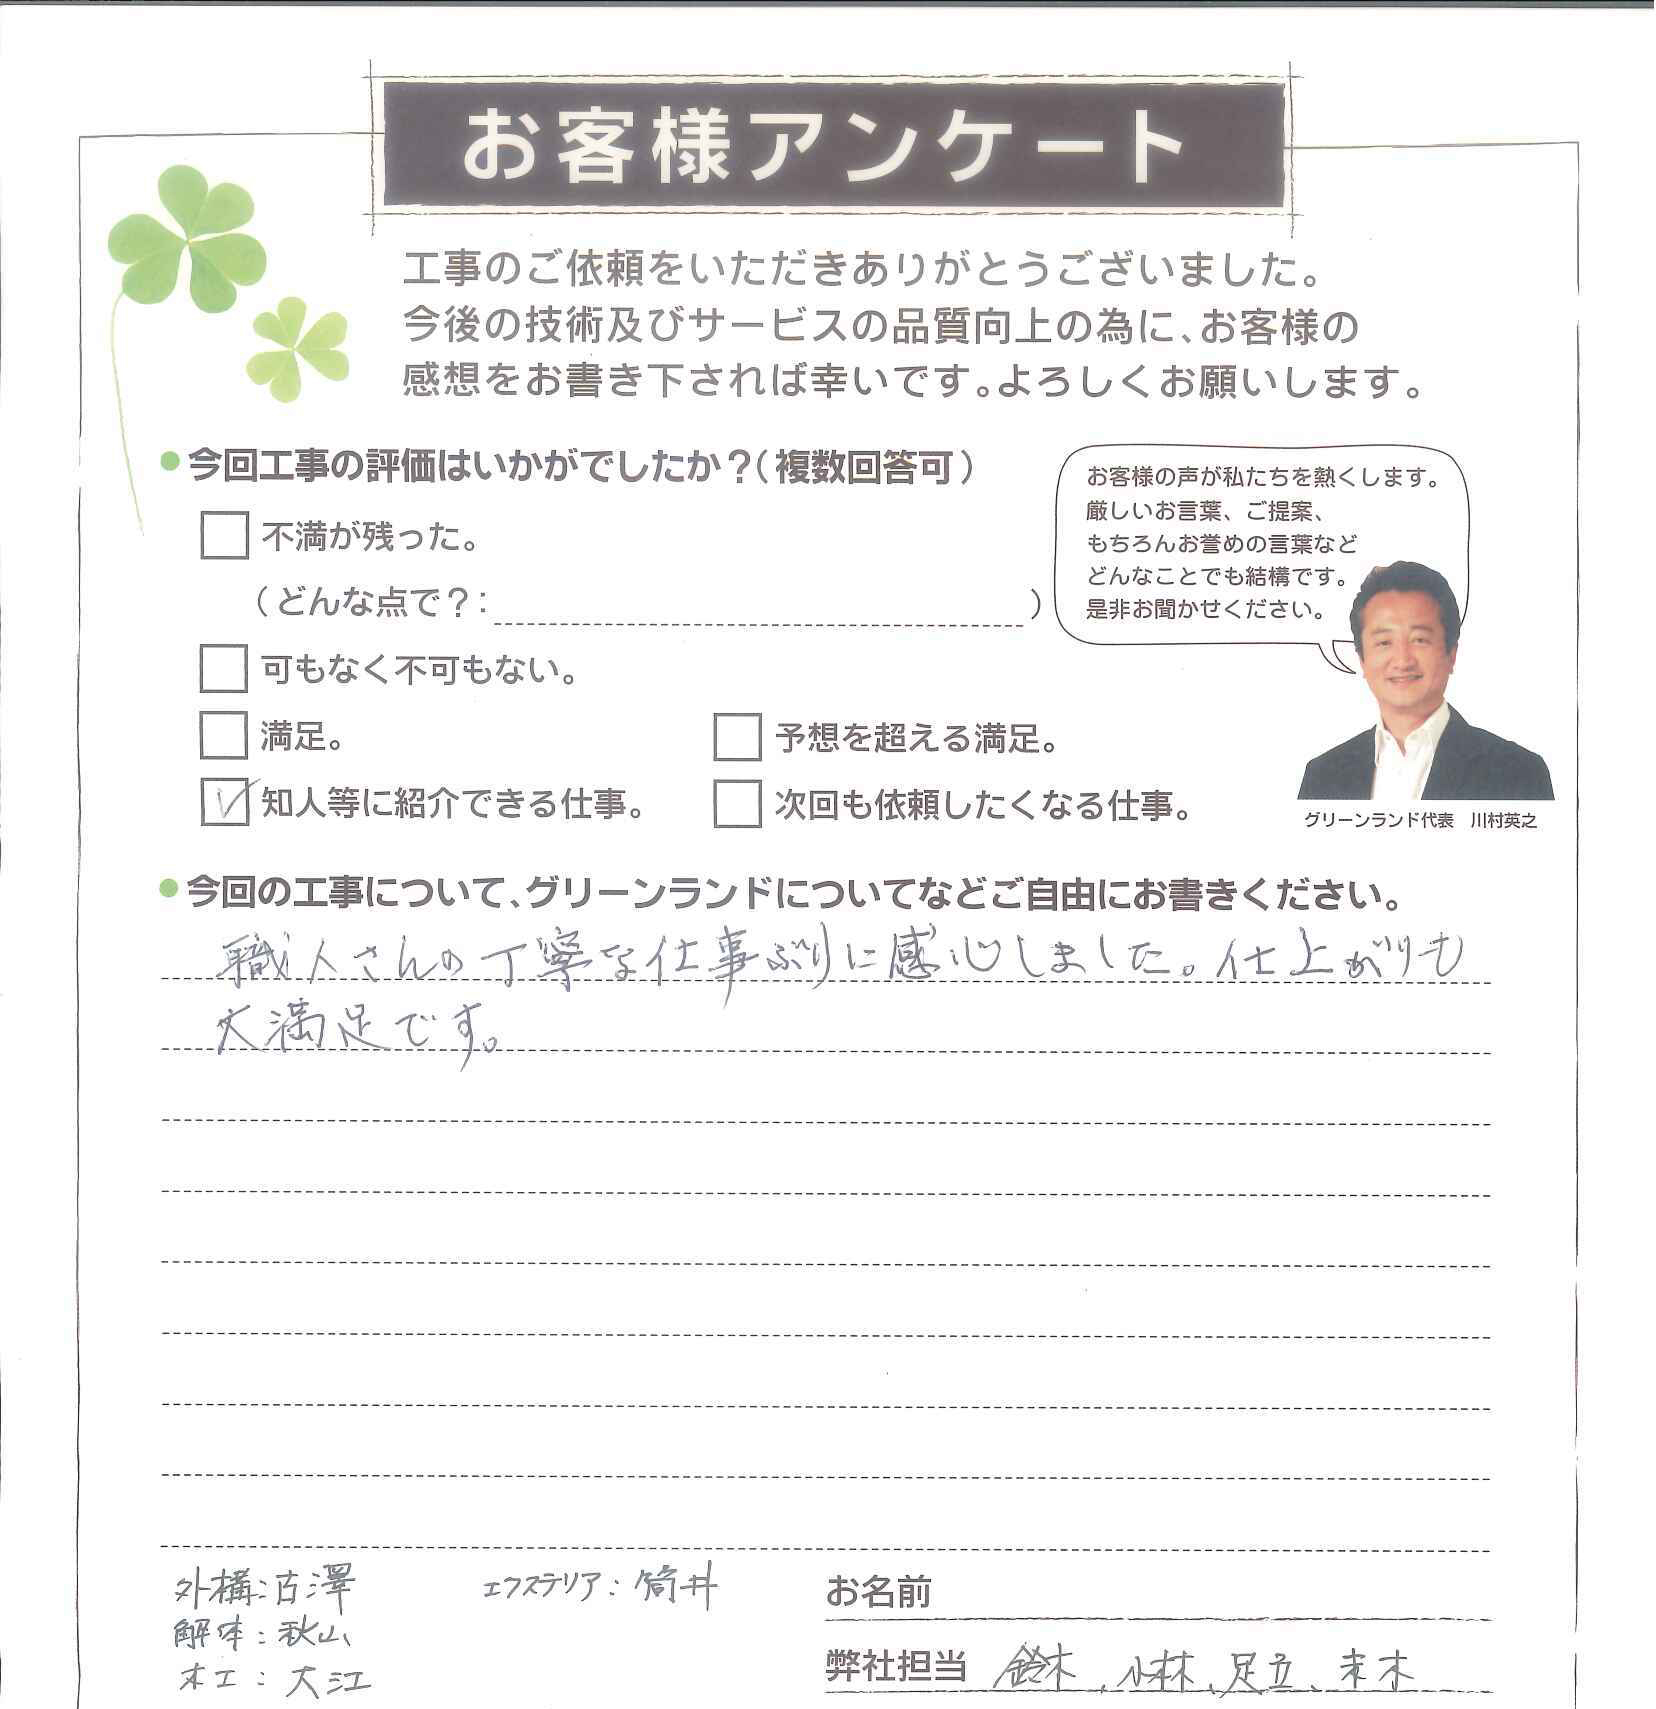 お客様アンケート
工事のご依頼をいただきありがとうございました。
今後の技術及びサービスの品質向上の為に、お客様の
感想をお書き下されば幸いです。よろしくお願いします。
●今回工事の評価はいかがでしたか？（複数回答可）
不満が残った。
（どんな点で？：　）
可もなく不可もない。
満足。
予想を超える満足。
知人等に紹介できる仕事。
次回も依頼したくなる仕事。
お客様の声が私たちを熱くします。
厳しいお言葉、ご提案、
もちろんお誉めの言葉など
どんなことでも結構です。
是非お聞かせください。
グリーンランド代表　川村英之
●今回の工事について、グリーンランドについてなどご自由にお書きください。
職人さんの丁寧な仕事ぶりに感心しました。仕上がりも
大満足です。
外構：古澤
解体：秋山
木工：大江
エクステリア：筒井
お名前
弊社担当 鈴木、小林、足立、末木